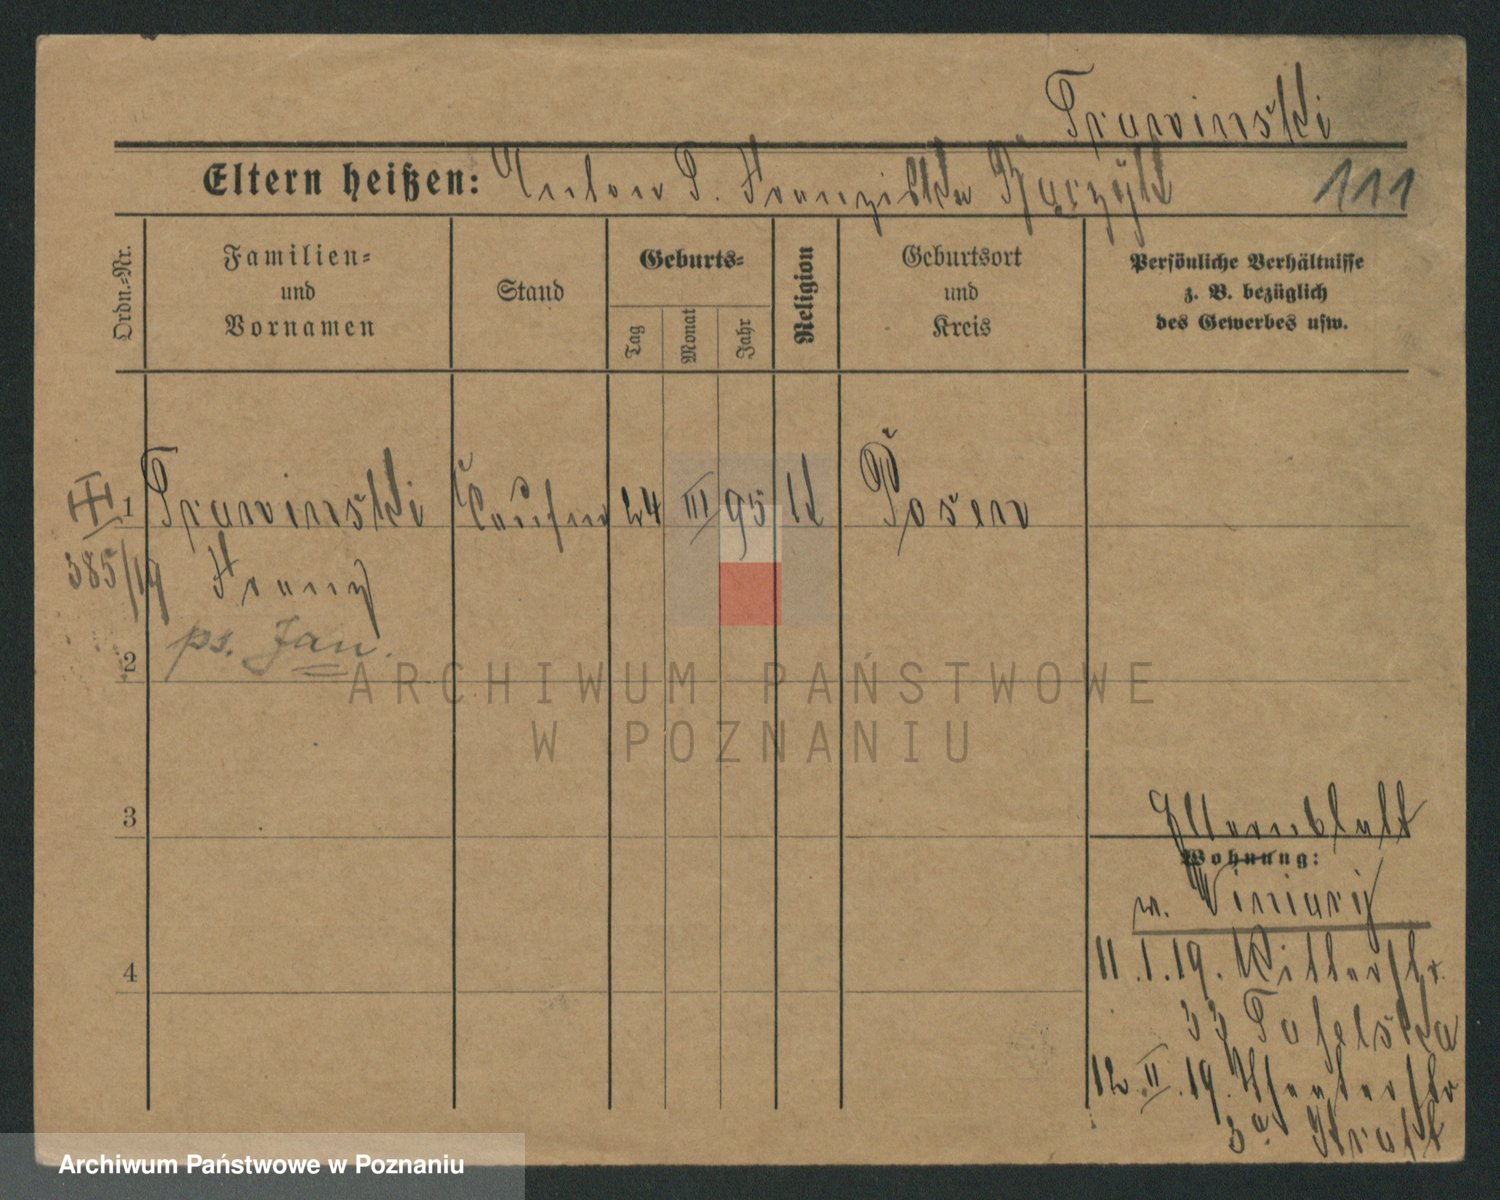 Trawinski
Eltern heißen: Anton T. Franziska
111
Ordn.-Nr.
Familien-
und
Vornamen
Stand
Geburts-
Tag
Monat
Jahr
Religion
Geburtsort
und
Kreis
Persönliche Verhältnisse
z. B. bezüglich
des Gewerbes usw.
1 Trawinski Kaufm 24 III 95 k Posen
385/19 Franz
ps. Jan.
2
ARCHIWUM PAŃSTWOWE
W POZNANIU
3
Elternblatt
Wohnung:
w. Winiary
11.1.19. Ritterstr.
33
4
12.II.19. Theaterstr
3a Kraft
Archiwum Państwowe w Poznaniu